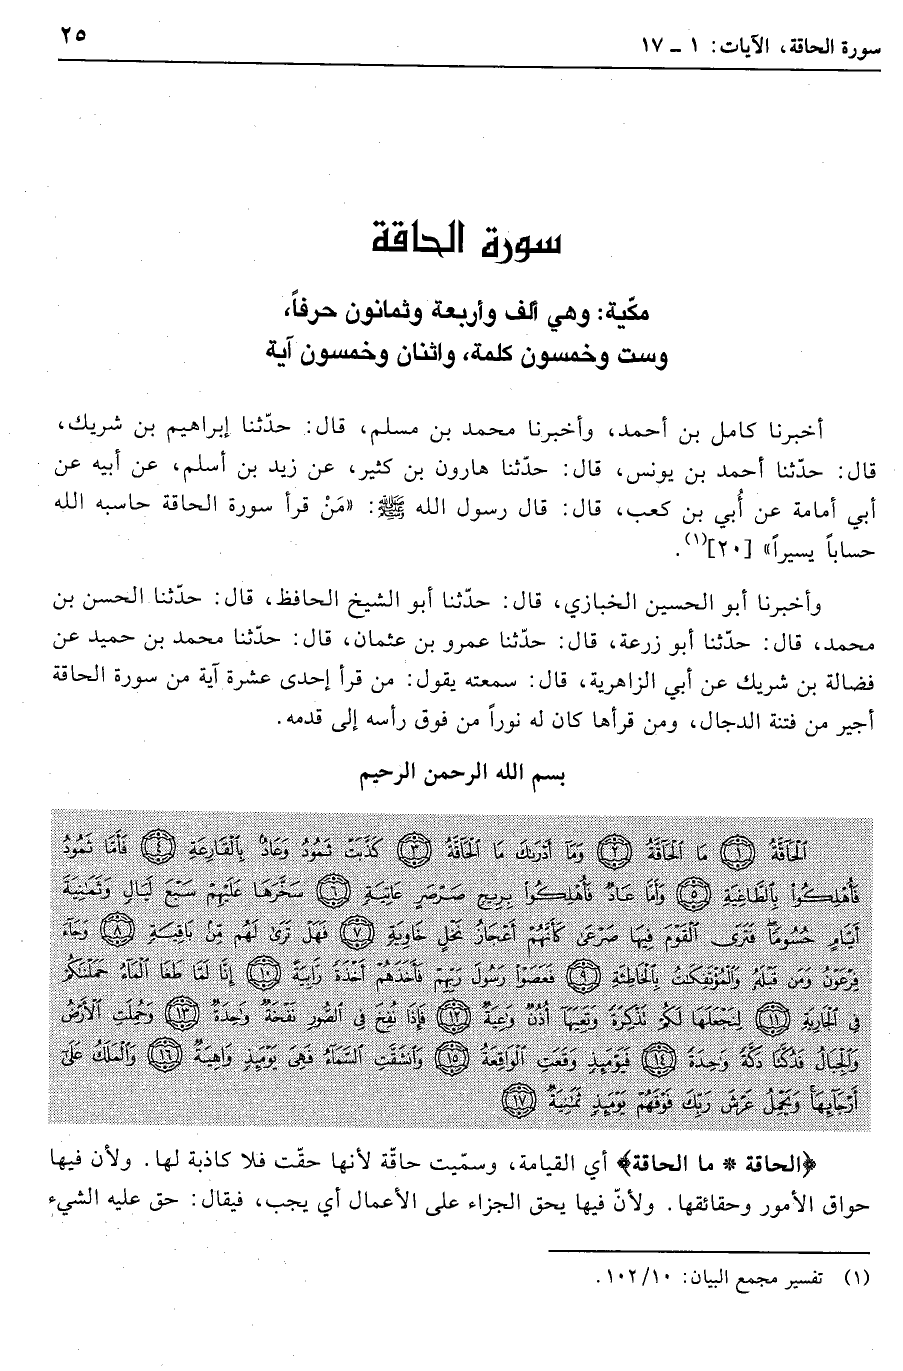 سورة الحاقة، الآيات: ١ ـ ١٧
٢٥
سورة الحاقة
مكّية: وهي ألف وأربعة وثمانون حرفاً،
وست وخمسون كلمة، واثنان وخمسون آية
أخبرنا كامل بن أحمد، وأخبرنا محمد بن مسلم، قال: حدّثنا إبراهيم بن شريك،
قال: حدّثنا أحمد بن يونس، قال: حدّثنا هارون بن كثير، عن زيد بن أسلم، عن أبيه عن
أبي أمامة عن أُبي بن كعب، قال: قال رسول الله ﷺ: «مَنْ قرأ سورة الحاقة حاسبه الله
حساباً يسيراً» [٢٠](١).
وأخبرنا أبو الحسين الخبازي، قال: حدّثنا أبو الشيخ الحافظ، قال: حدّثنا الحسن بن
محمد، قال: حدّثنا أبو زرعة، قال: حدّثنا عمرو بن عثمان، قال: حدّثنا محمد بن حميد عن
فضالة بن شريك عن أبي الزاهرية، قال: سمعته يقول: من قرأ إحدى عشرة آية من سورة الحاقة
أجير من فتنة الدجال، ومن قرأها كان له نوراً من فوق رأسه إلى قدمه.
بسم الله الرحمن الرحيم
ٱلْحَآقَّةُ ١ مَا ٱلْحَآقَّةُ ٢ وَمَآ أَدْرَىٰكَ مَا ٱلْحَآقَّةُ ٣ كَذَّبَتْ ثَمُودُ وَعَادٌۢ بِٱلْقَارِعَةِ ٤ فَأَمَّا ثَمُودُ
فَأُهْلِكُوا۟ بِٱلطَّاغِيَةِ ٥ وَأَمَّا عَادٌ فَأُهْلِكُوا۟ بِرِيحٍ صَرْصَرٍ عَاتِيَةٍ ٦ سَخَّرَهَا عَلَيْهِمْ سَبْعَ لَيَالٍ وَثَمَٰنِيَةَ
أَيَّامٍ حُسُومًا فَتَرَى ٱلْقَوْمَ فِيهَا صَرْعَىٰ كَأَنَّهُمْ أَعْجَازُ نَخْلٍ خَاوِيَةٍ ٧ فَهَلْ تَرَىٰ لَهُم مِّنۢ بَاقِيَةٍ ٨ وَجَآءَ
فِرْعَوْنُ وَمَن قَبْلَهُۥ وَٱلْمُؤْتَفِكَٰتُ بِٱلْخَاطِئَةِ ٩ فَعَصَوْا۟ رَسُولَ رَبِّهِمْ فَأَخَذَهُمْ أَخْذَةً رَّابِيَةً ١٠ إِنَّا لَمَّا طَغَا ٱلْمَآءُ حَمَلْنَٰكُمْ
فِى ٱلْجَارِيَةِ ١١ لِنَجْعَلَهَا لَكُمْ تَذْكِرَةً وَتَعِيَهَآ أُذُنٌ وَٰعِيَةٌ ١٢ فَإِذَا نُفِخَ فِى ٱلصُّورِ نَفْخَةٌ وَٰحِدَةٌ ١٣ وَحُمِلَتِ ٱلْأَرْضُ
وَٱلْجِبَالُ فَدُكَّتَا دَكَّةً وَٰحِدَةً ١٤ فَيَوْمَئِذٍ وَقَعَتِ ٱلْوَاقِعَةُ ١٥ وَٱنشَقَّتِ ٱلسَّمَآءُ فَهِىَ يَوْمَئِذٍ وَاهِيَةٌ ١٦ وَٱلْمَلَكُ عَلَىٰٓ
أَرْجَآئِهَا وَيَحْمِلُ عَرْشَ رَبِّكَ فَوْقَهُمْ يَوْمَئِذٍ ثَمَٰنِيَةٌ ١٧
﴿الحاقة * ما الحاقة﴾ أي القيامة، وسمّيت حاقّة لأنها حقّت فلا كاذبة لها. ولأن فيها
حواق الأمور وحقائقها. ولأنّ فيها يحق الجزاء على الأعمال أي يجب، فيقال: حق عليه الشيء
(١) تفسير مجمع البيان: ١٠/١٠٢.